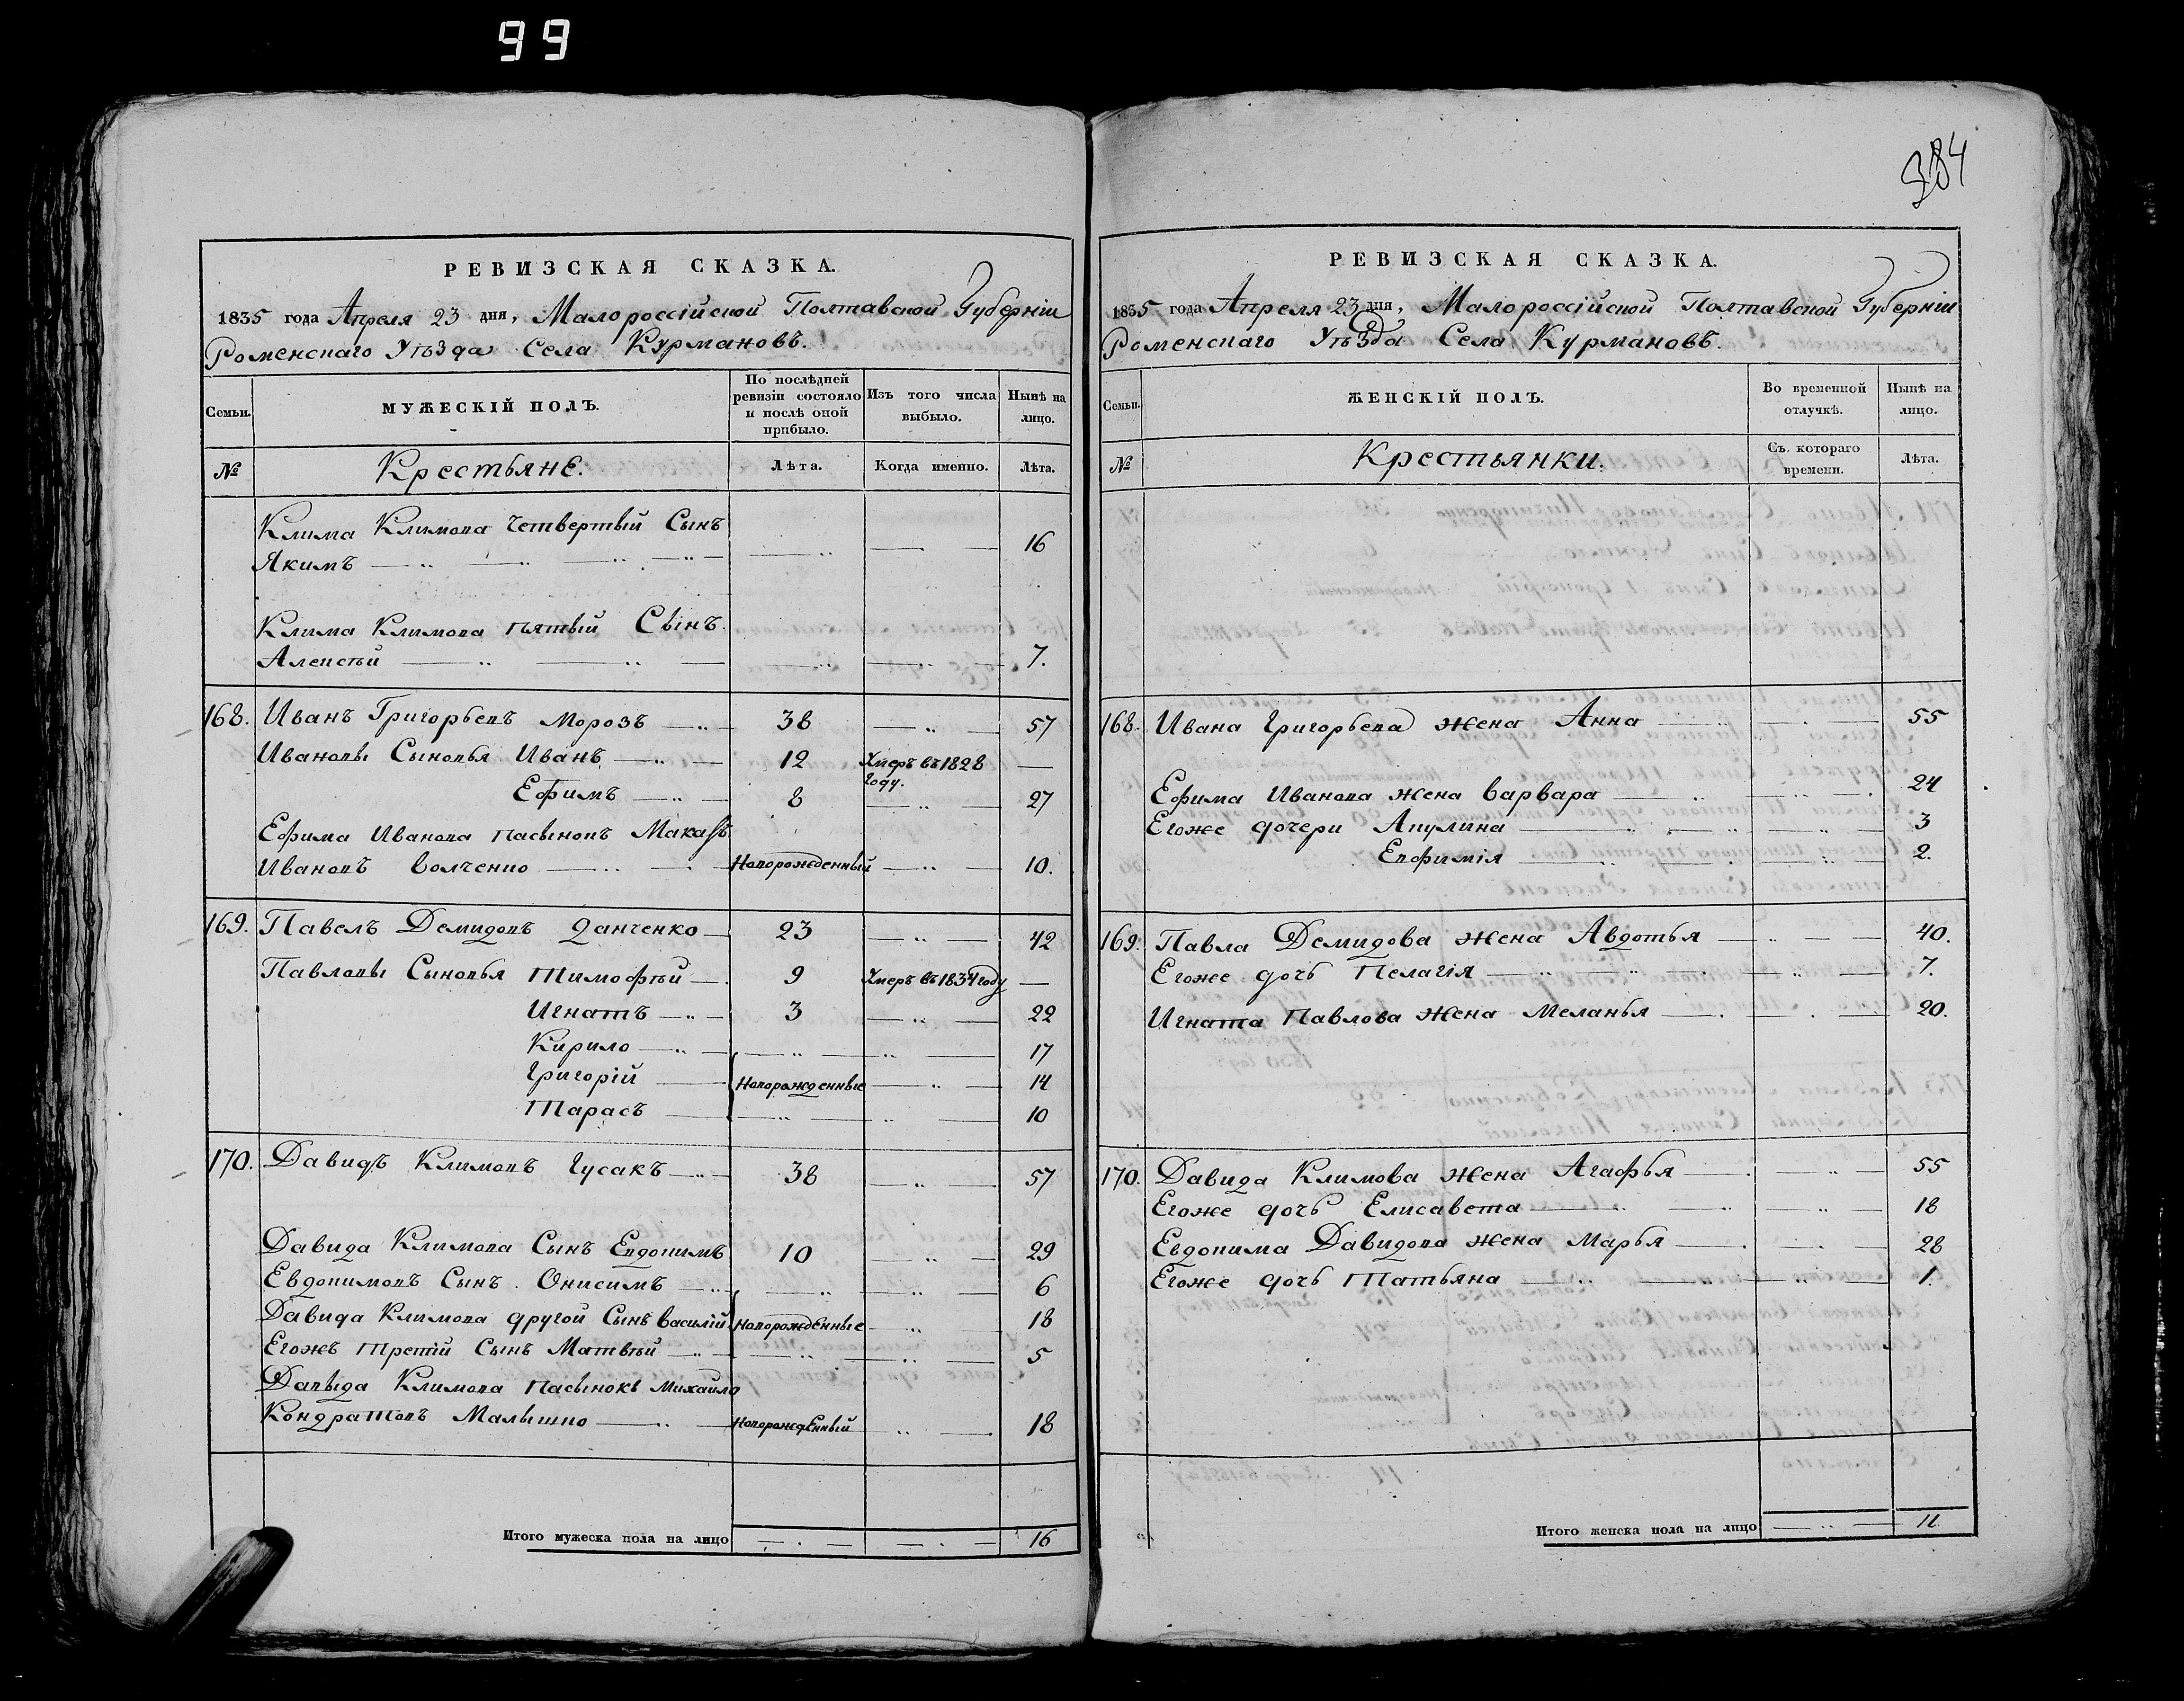 99
384
РЕВИЗСКАЯ СКАЗКА.
1835 года Апреля 23 дня, Малороссійской Полтавской Губерніи
Роменскаго Уѣзда Села Курмановъ.
Семьи.
МУЖЕСКІЙ ПОЛЪ.
По послѣдней ревизіи состояло и послѣ оной прибыло.
Изъ того числа выбыло.
Нынѣ на лицо.
№
Крестьяне.
Лѣта.
Когда именно.
Лѣта.
Клима Климова четвертый Сынъ
Якимъ 16
Клима Климова пятый Сынъ
Алексѣй 7.
168. Иванъ Григорьевъ Морозъ 38 57
Ивановы Сыновья Иванъ 12 Умеръ въ 1828 году.
Ефимъ 8 27
Ефима Иванова пасынокъ Макаръ
Ивановъ Волченко Новорожденный 10.
169. Павелъ Демидовъ Данченко 23 42
Павловы Сыновья Тимофѣй 9 Умеръ въ 1834 году
Игнатъ 3 22
Кирило 17
Григорій Новорожденные 14
Тарасъ 10
170. Давидъ Климовъ Гусакъ 38 57
Давида Климова Сынъ Евдокимъ 10 29
Евдокимовъ Сынъ Онисимъ 6
Давида Климова другой Сынъ Василій Новорожденные 18
Егожъ третій Сынъ Матвѣй 5
Давыда Климова пасынокъ Михайло
Кондратовъ Малышко Новорожденный 18
Итого мужеска пола на лицо 16
РЕВИЗСКАЯ СКАЗКА.
1835 года Апреля 23 дня, Малороссійской Полтавской Губерніи
Роменскаго Уѣзда Села Курмановъ.
Семьи.
ЖЕНСКІЙ ПОЛЪ.
Во временной отлучкѣ.
Нынѣ на лицо.
№
Крестьянки.
Съ котораго времени.
Лѣта.
168. Ивана Григорьева жена Анна 55
Ефима Иванова жена Варвара 24
Егоже дочери Акулина 3
Евфимія 2.
169. Павла Демидова жена Авдотья 40.
Егоже дочь Пелагія 7.
Игната Павлова жена Меланья 20.
170. Давида Климова жена Агафья 55
Егоже дочь Елисавета 18
Евдокима Давидова жена Марья 28
Егоже дочь Татьяна 1.
Итого женска пола на лицо 11.